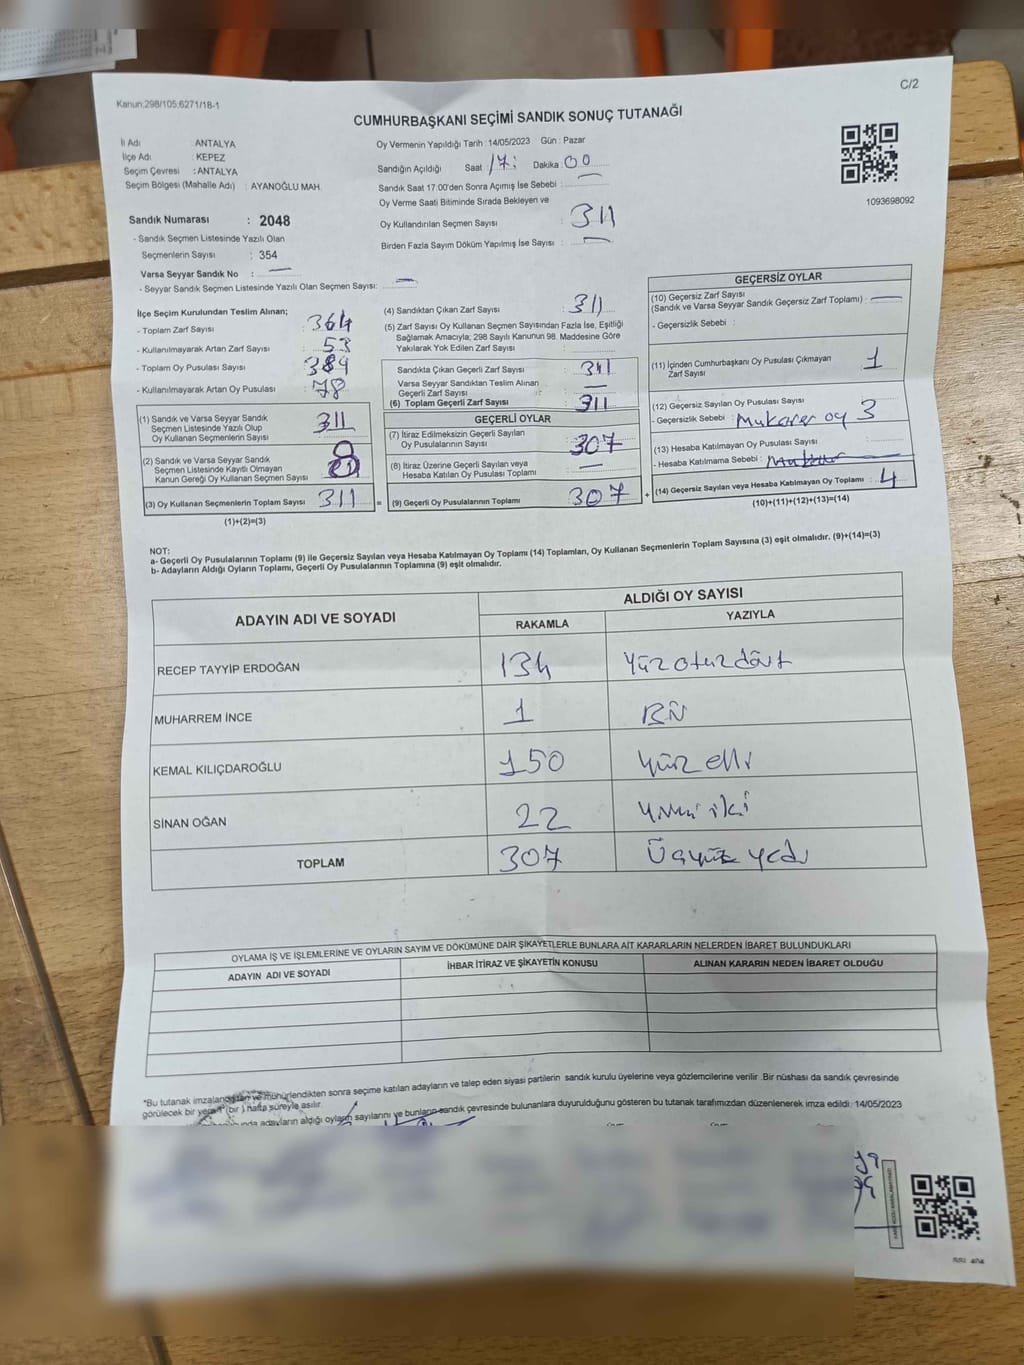 Kanun:298/105:6271/18-1
C/2
CUMHURBAŞKANI SEÇİMİ SANDIK SONUÇ TUTANAĞI
İl Adı : ANTALYA
İlçe Adı : KEPEZ
Seçim Çevresi : ANTALYA
Seçim Bölgesi (Mahalle Adı) : AYANOĞLU MAH.
Sandık Numarası : 2048
- Sandık Seçmen Listesinde Yazılı Olan
Seçmenlerin Sayısı : 354
Varsa Seyyar Sandık No : —
- Seyyar Sandık Seçmen Listesinde Yazılı Olan Seçmen Sayısı: —
Oy Vermenin Yapıldığı Tarih : 14/05/2023 Gün : Pazar
Sandığın Açıldığı Saat 17: Dakika 00
Sandık Saat 17.00'den Sonra Açımış İse Sebebi :
Oy Verme Saati Bitiminde Sırada Bekleyen ve
Oy Kullandırılan Seçmen Sayısı : 311
Birden Fazla Sayım Döküm Yapılmış İse Sayısı : —
1093698092
İlçe Seçim Kurulundan Teslim Alınan;
- Toplam Zarf Sayısı : 364
- Kullanılmayarak Artan Zarf Sayısı : 53
- Toplam Oy Pusulası Sayısı : 389
- Kullanılmayarak Artan Oy Pusulası : 78
(1) Sandık ve Varsa Seyyar Sandık
Seçmen Listesinde Yazılı Olup
Oy Kullanan Seçmenlerin Sayısı : 311
(2) Sandık ve Varsa Seyyar Sandık
Seçmen Listesinde Kayıtlı Olmayan
Kanun Gereği Oy Kullanan Seçmen Sayısı
(3) Oy Kullanan Seçmenlerin Toplam Sayısı : 311 =
(1)+(2)=(3)
(4) Sandıktan Çıkan Zarf Sayısı : 311
(5) Zarf Sayısı Oy Kullanan Seçmen Sayısından Fazla İse, Eşitliği
Sağlamak Amacıyla; 298 Sayılı Kanunun 98. Maddesine Göre
Yakılarak Yok Edilen Zarf Sayısı :
Sandıkta Çıkan Geçerli Zarf Sayısı : 311
Varsa Seyyar Sandıktan Teslim Alınan
Geçerli Zarf Sayısı : —
(6) Toplam Geçerli Zarf Sayısı : 311
GEÇERLİ OYLAR
(7) İtiraz Edilmeksizin Geçerli Sayılan
Oy Pusulalarının Sayısı : 307
(8) İtiraz Üzerine Geçerli Sayılan veya
Hesaba Katılan Oy Pusulası Toplamı : —
(9) Geçerli Oy Pusulalarının Toplamı : 307 +
GEÇERSİZ OYLAR
(10) Geçersiz Zarf Sayısı
(Sandık ve Varsa Seyyar Sandık Geçersiz Zarf Toplamı) : —
- Geçersizlik Sebebi :
(11) İçinden Cumhurbaşkanı Oy Pusulası Çıkmayan
Zarf Sayısı : 1
(12) Geçersiz Sayılan Oy Pusulası Sayısı
- Geçersizlik Sebebi : Mukerer oy 3
(13) Hesaba Katılmayan Oy Pusulası Sayısı :
- Hesaba Katılmama Sebebi :
(14) Geçersiz Sayılan veya Hesaba Katılmayan Oy Toplamı : 4
(10)+(11)+(12)+(13)=(14)
NOT:
a- Geçerli Oy Pusulalarının Toplamı (9) ile Geçersiz Sayılan veya Hesaba Katılmayan Oy Toplamı (14) Toplamları, Oy Kullanan Seçmenlerin Toplam Sayısına (3) eşit olmalıdır. (9)+(14)=(3)
b- Adayların Aldığı Oyların Toplamı, Geçerli Oy Pusulalarının Toplamına (9) eşit olmalıdır.
ADAYIN ADI VE SOYADI ALDIĞI OY SAYISI
RAKAMLA YAZIYLA
RECEP TAYYİP ERDOĞAN 134 Yüzotuzdört
MUHARREM İNCE 1 BİR
KEMAL KILIÇDAROĞLU 150 yüz elli
SİNAN OĞAN 22 yirmi iki
TOPLAM 307 Üçyüz yedi
OYLAMA İŞ VE İŞLEMLERİNE VE OYLARIN SAYIM VE DÖKÜMÜNE DAİR ŞİKAYETLERLE BUNLARA AİT KARARLARIN NELERDEN İBARET BULUNDUKLARI
ADAYIN ADI VE SOYADI İHBAR İTİRAZ VE ŞİKAYETİN KONUSU ALINAN KARARIN NEDEN İBARET OLDUĞU
*Bu tutanak imzalandıktan ve mühürlendikten sonra seçime katılan adayların ve talep eden siyasi partilerin sandık kurulu üyelerine veya gözlemcilerine verilir .Bir nüshası da sandık çevresinde
görülecek bir yere 1 (bir ) hafta süreyle asılır.
adayların aldığı oyların sayılarını ve bunların sandık çevresinde bulunanlara duyurulduğunu gösteren bu tutanak tarafımızdan düzenlenerek imza edildi. 14/05/2023